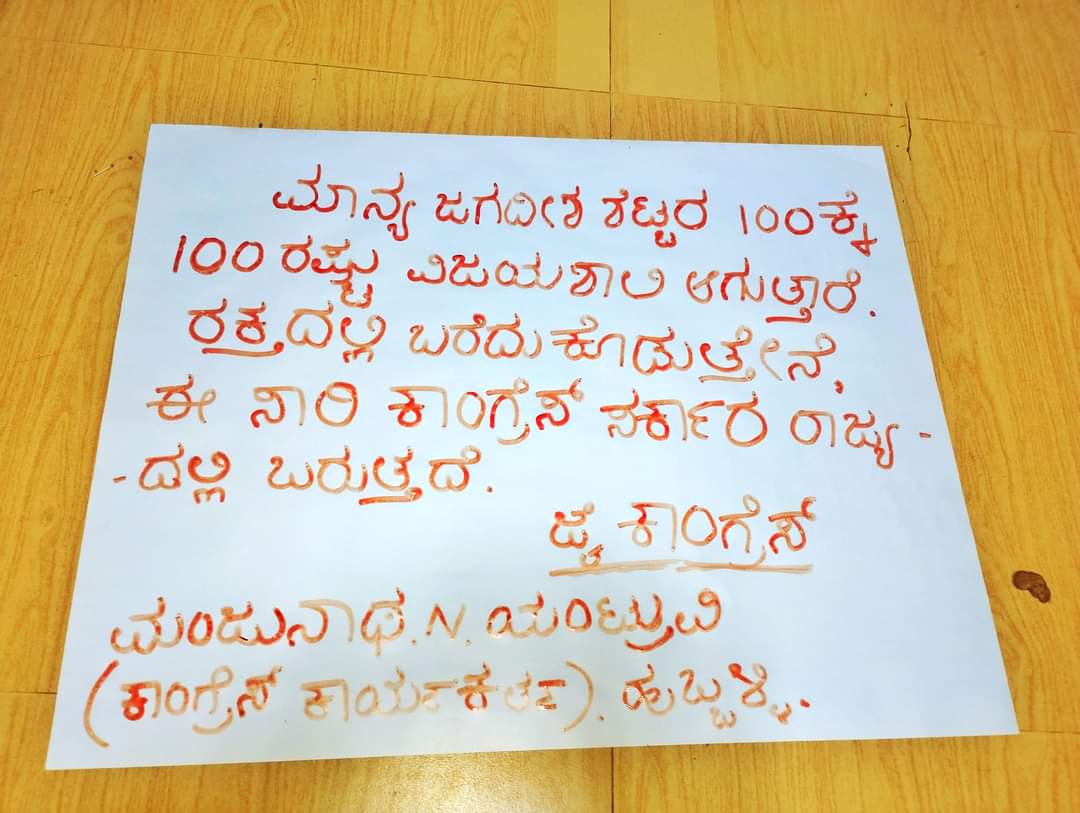 ಮಾನ್ಯ ಜಗದೀಶ ಶೆಟ್ಟರ 100ಕ್ಕೆ
100 ರಷ್ಟು ವಿಜಯಶಾಲಿ ಆಗುತ್ತಾರೆ.
ರಕ್ತದಲ್ಲಿ ಬರೆದುಕೊಡುತ್ತೇನೆ,
ಈ ಸಾರಿ ಕಾಂಗ್ರೆಸ್ ಸರ್ಕಾರ ರಾಜ್ಯ -
- ದಲ್ಲಿ ಬರುತ್ತದೆ.
ಜೈ ಕಾಂಗ್ರೆಸ್
ಮಂಜುನಾಥ. N. ಯಂಟ್ರುವಿ
(ಕಾಂಗ್ರೆಸ್ ಕಾರ್ಯಕರ್ತ). ಹುಬ್ಬಳ್ಳಿ.